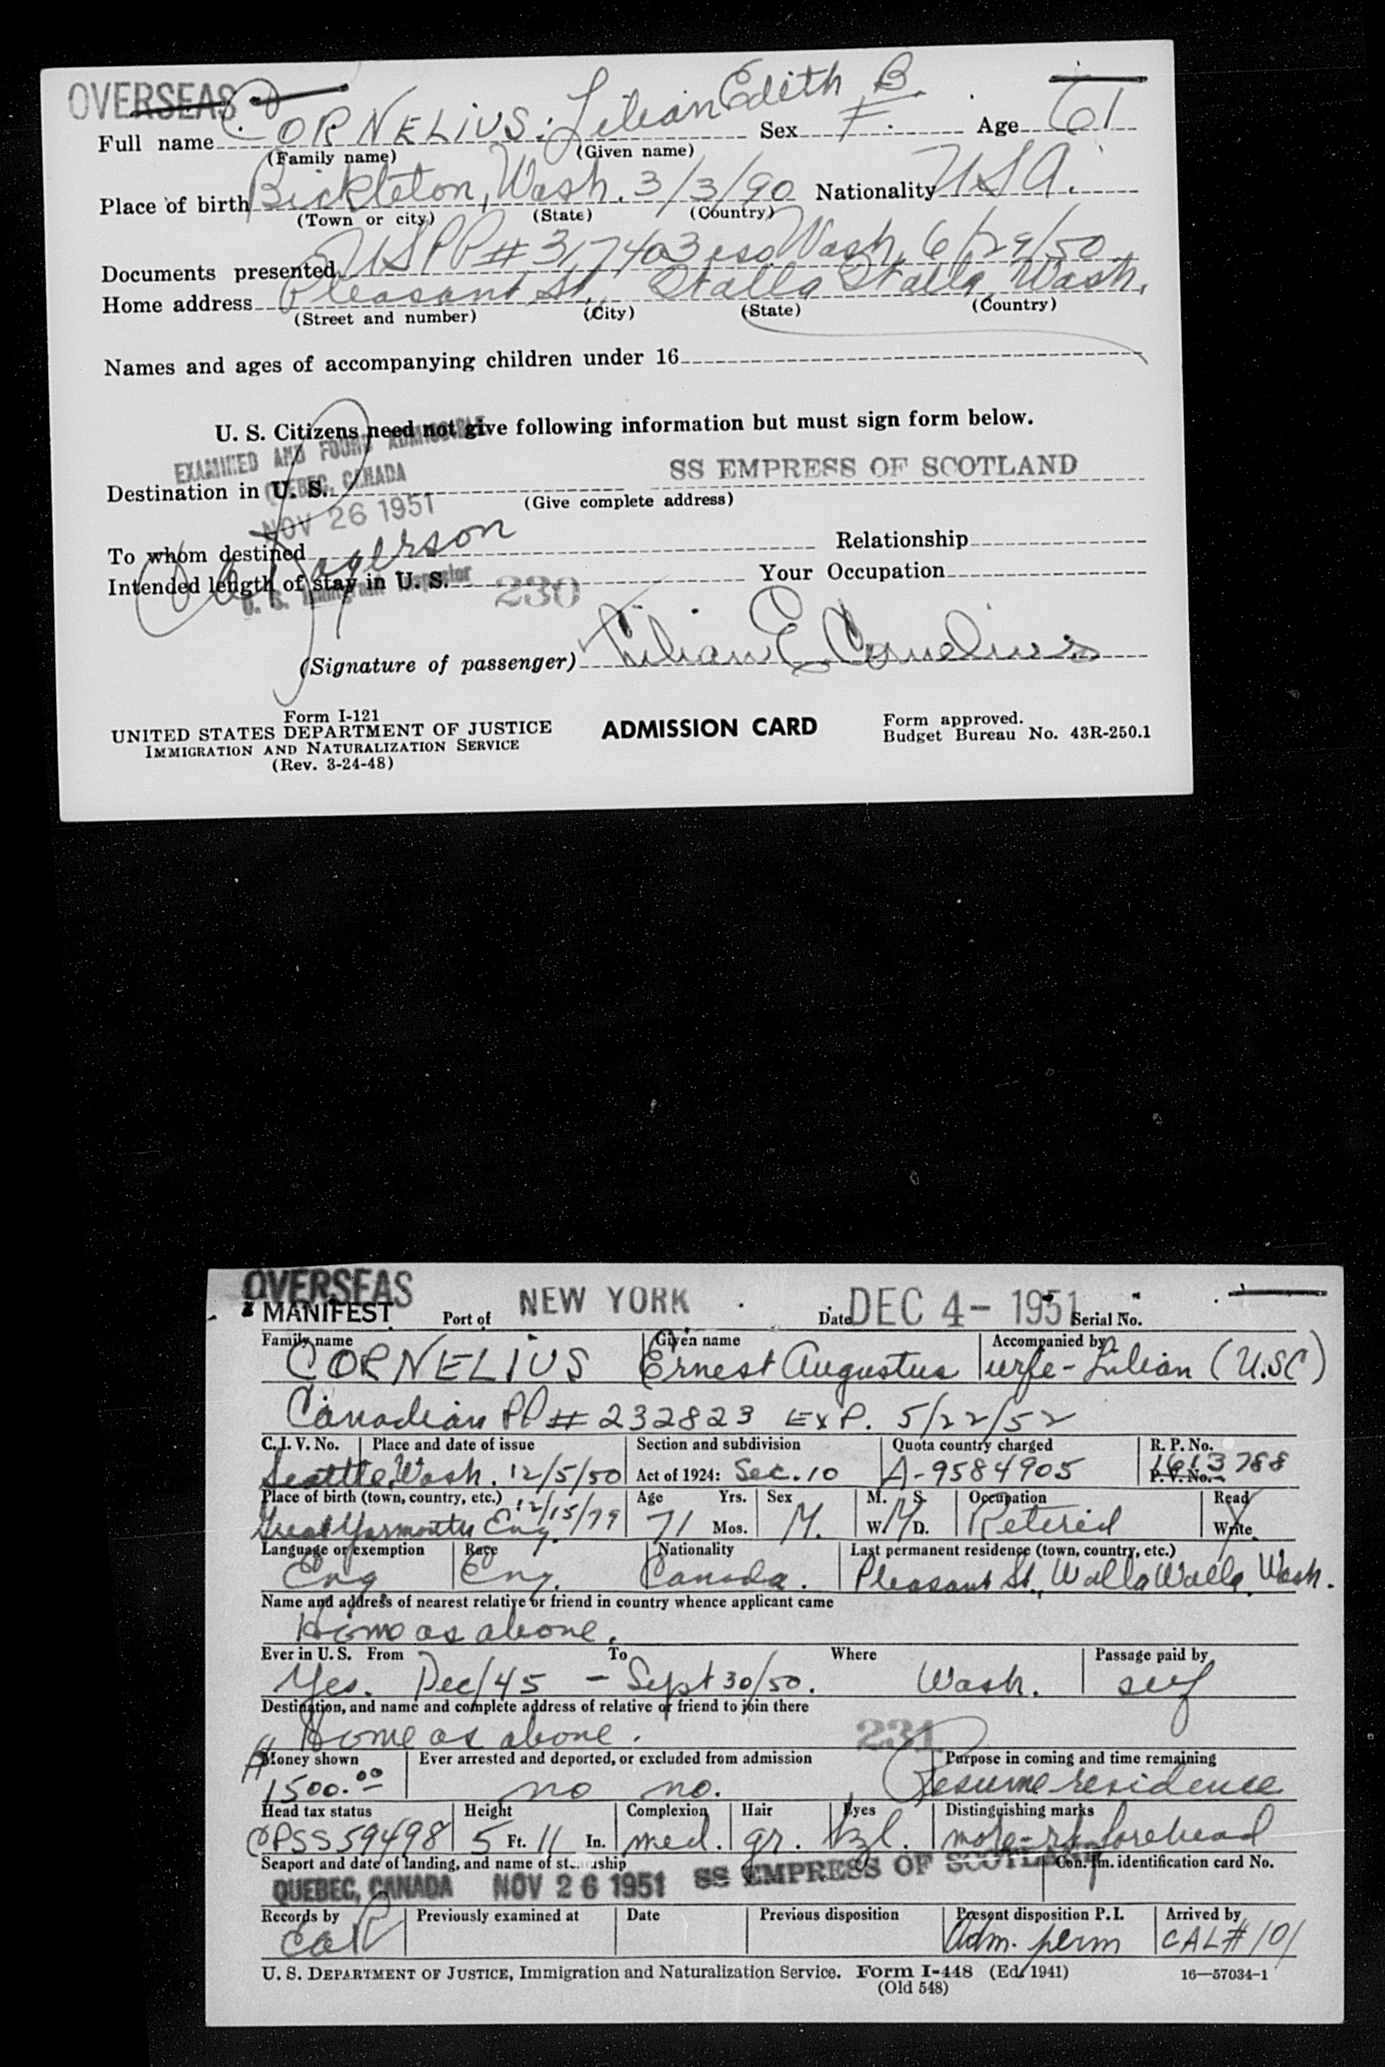 OVERSEAS
Full name CORNELIUS: Lilian Edith B. Sex F. Age 61
(Family name) (Given name)
Place of birth Bickleton, Wash. 3/3/90 Nationality USA.
(Town or city) (State) (Country)
Documents presented USPP# 317403 iss Wash. 6/29/50
Home address Pleasant St., Walla Walla, Wash.
(Street and number) (City) (State) (Country)
Names and ages of accompanying children under 16
U. S. Citizens need not give following information but must sign form below.
EXAMINED AND FOUND ADMISSIBLE
QUEBEC, CANADA
SS EMPRESS OF SCOTLAND
Destination in U. S.
(Give complete address)
NOV 26 1951
To whom destined Relationship
Intended length of stay in U. S. Your Occupation
U. S. Immigrant Inspector 230
(Signature of passenger) Lilian E. Cornelius
Form I-121
UNITED STATES DEPARTMENT OF JUSTICE
IMMIGRATION AND NATURALIZATION SERVICE
(Rev. 3-24-48)
ADMISSION CARD
Form approved.
Budget Bureau No. 43R-250.1
OVERSEAS
MANIFEST Port of NEW YORK Date DEC 4- 1951 Serial No.
Family name Given name Accompanied by
CORNELIUS Ernest Augustus wife-Lilian (U.S.C)
Canadian PP# 232823 EXP. 5/22/52
C. I. V. No. Place and date of issue Section and subdivision Quota country charged R. P. No.
Seattle, Wash. 12/5/50 Act of 1924: Sec. 10 A-9584905 1613788
P. V. No.
Place of birth (town, country, etc.) Age Yrs. Sex M. S. Occupation Read
Great Yarmouth Eng. 12/15/79 71 Mos. M. W. M D. Retired Write
Language or exemption Race Nationality Last permanent residence (town, country, etc.)
Eng Eng. Canada. Pleasant St., Walla Walla, Wash.
Name and address of nearest relative or friend in country whence applicant came
Home as above.
Ever in U. S. From To Where Passage paid by
Yes. Dec/45 - Sept 30/50. Wash. self
Destination, and name and complete address of relative or friend to join there
Home as above. 231
Money shown Ever arrested and deported, or excluded from admission Purpose in coming and time remaining
1500.00 no no. Resume residence
Head tax status Height Complexion Hair Eyes Distinguishing marks
CPSS 59498 5 Ft. 11 In. med. gr. hzl. mole-rt forehead
Seaport and date of landing, and name of steamship Con. Im. identification card No.
QUEBEC, CANADA NOV 26 1951 SS EMPRESS OF SCOTLAND
Records by Previously examined at Date Previous disposition Present disposition P. I. Arrived by
Adm. perm CAL# 101
U. S. DEPARTMENT OF JUSTICE, Immigration and Naturalization Service. Form I-448 (Ed. 1941) 16—57034-1
(Old 548)